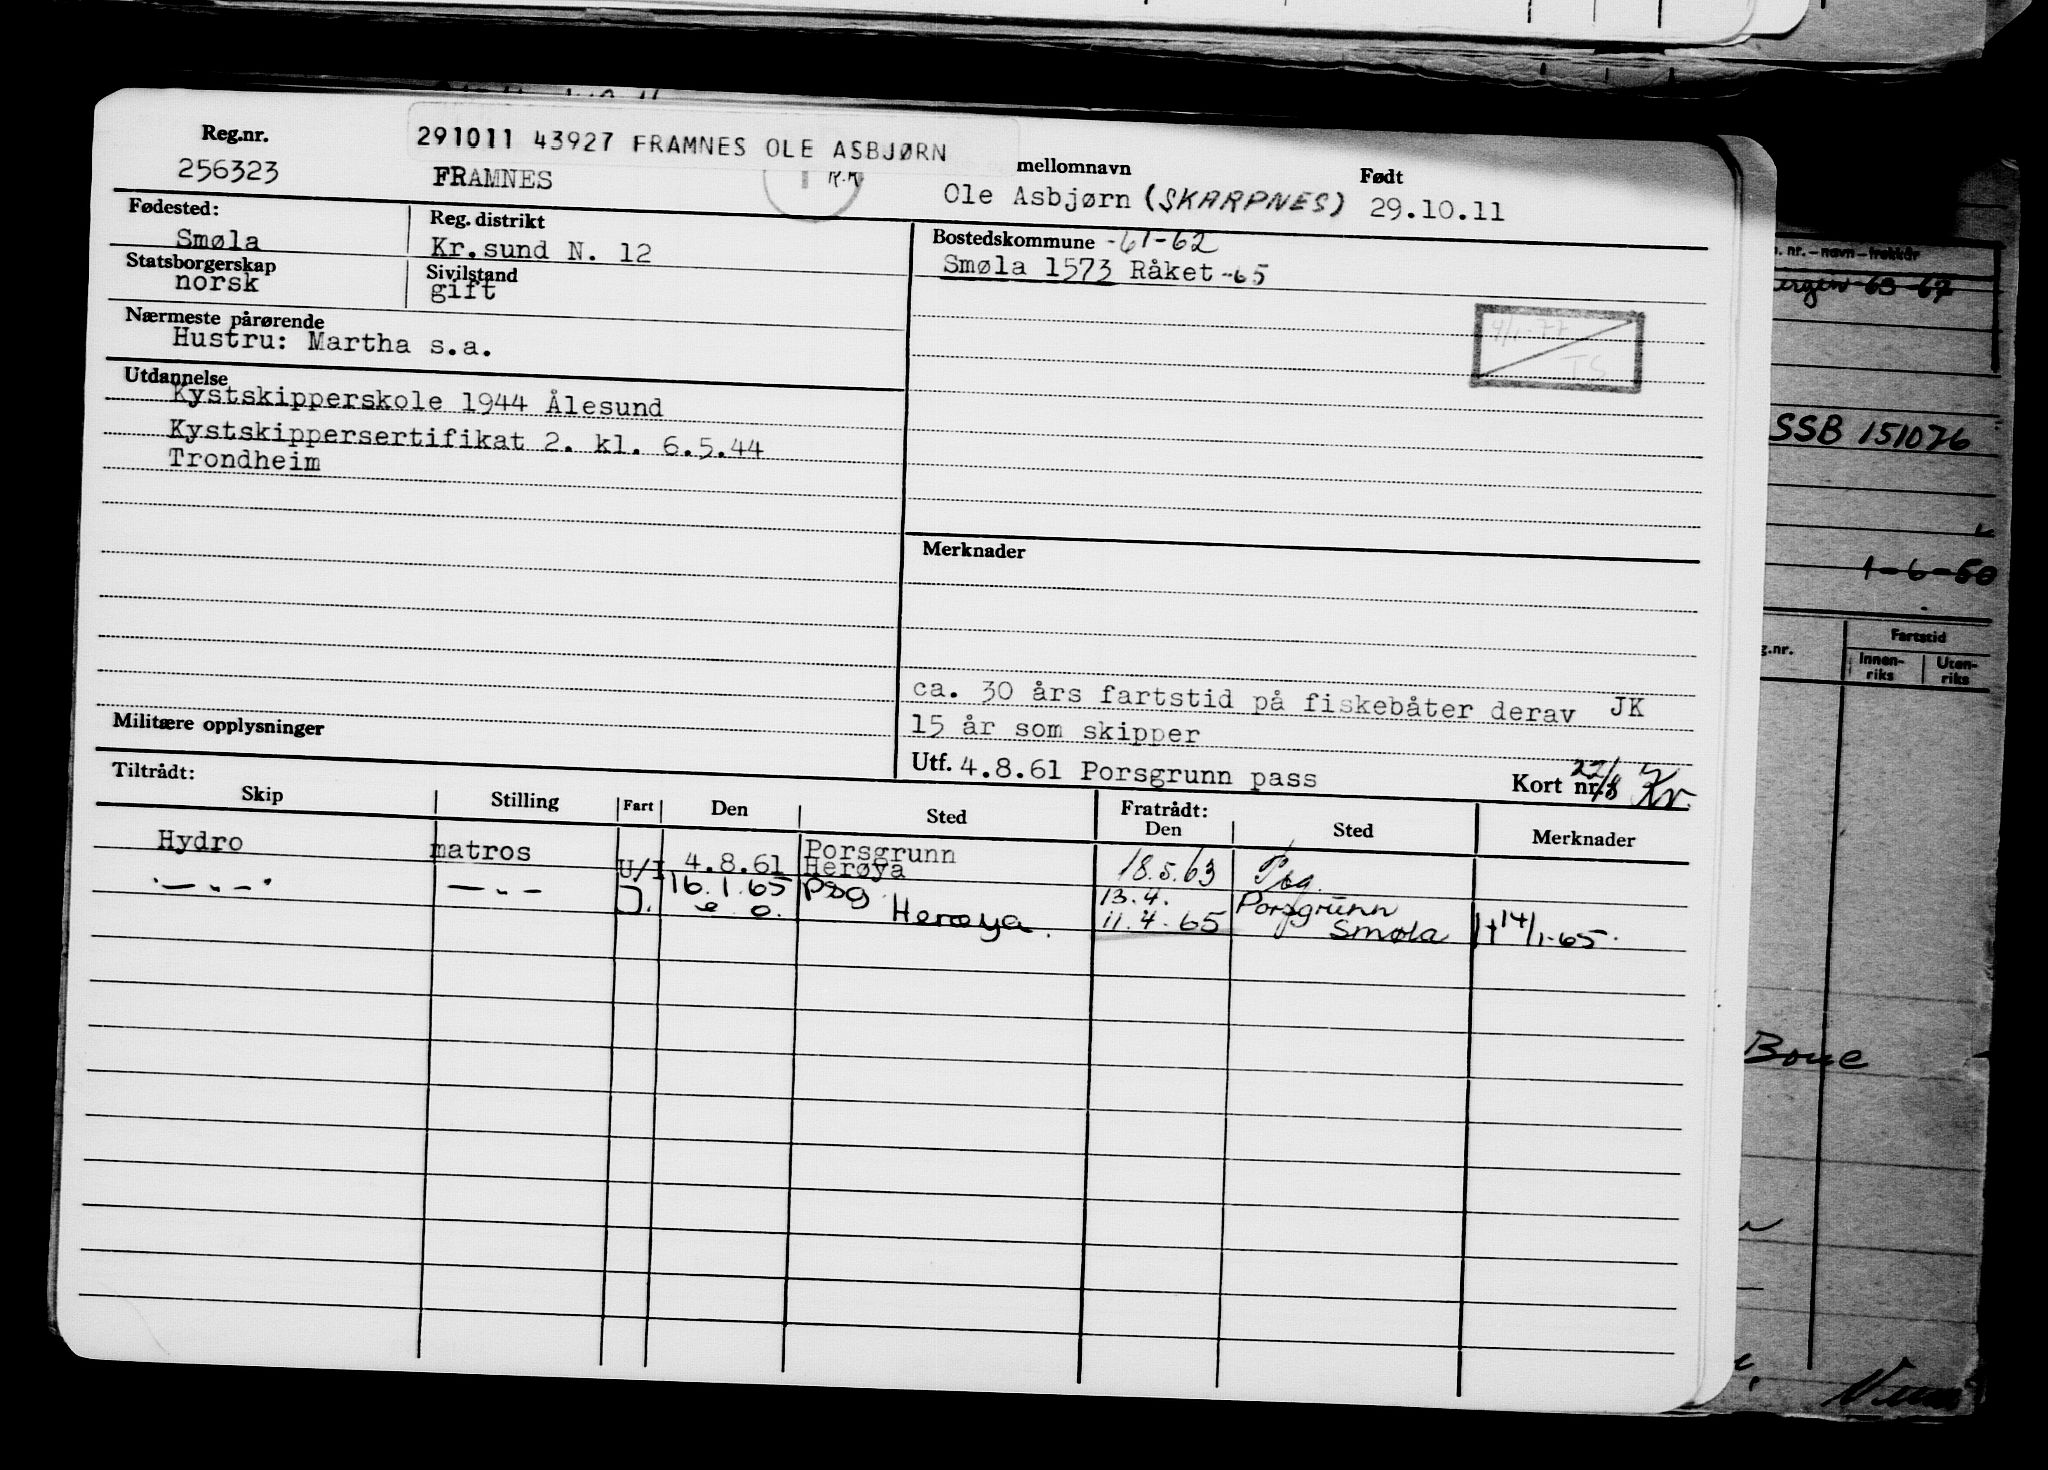 Reg.nr.
291011 43927 FRAMNES OLE ASBJØRN
mellomnavn
Født
256323
FRAMNES
K.K
Ole Asbjørn (SKARPNES)
29.10.11
Fødested:
Smøla
Reg. distrikt
Kr.sund N. 12
Bostedskommune -61-62
Smøla 1573 Råket -65
Statsborgerskap
norsk
Sivilstand
gift
Nærmeste pårørende
Hustru: Martha s.a.
TS
Utdannelse
Kystskipperskole 1944 Ålesund
Kystskippersertifikat 2. kl. 6.5.44
Trondheim
Merknader
ca. 30 års fartstid på fiskebåter derav JK
15 år som skipper
Militære opplysninger
Utf. 4.8.61 Porsgrunn pass
Kort nr. 22/8 Kr.
Tiltrådt:
Skip
Stilling
Fart
Den
Sted
Fratrådt:
Den
Sted
Merknader
Hydro matros U/I 4.8.61 Porsgrunn
Herøya 18.5.63 Psg.
-"- -"- I. 16.1.65 Psg 13.4. Porsgrunn
e. o. Herøya. 11.4.65 Smøla 14/1-65.
n. nr. – navn – trekkår
63-67
SSB 151076
1-6-50
Fartstid
g.nr.
Innen-
riks
Uten-
riks
Boue